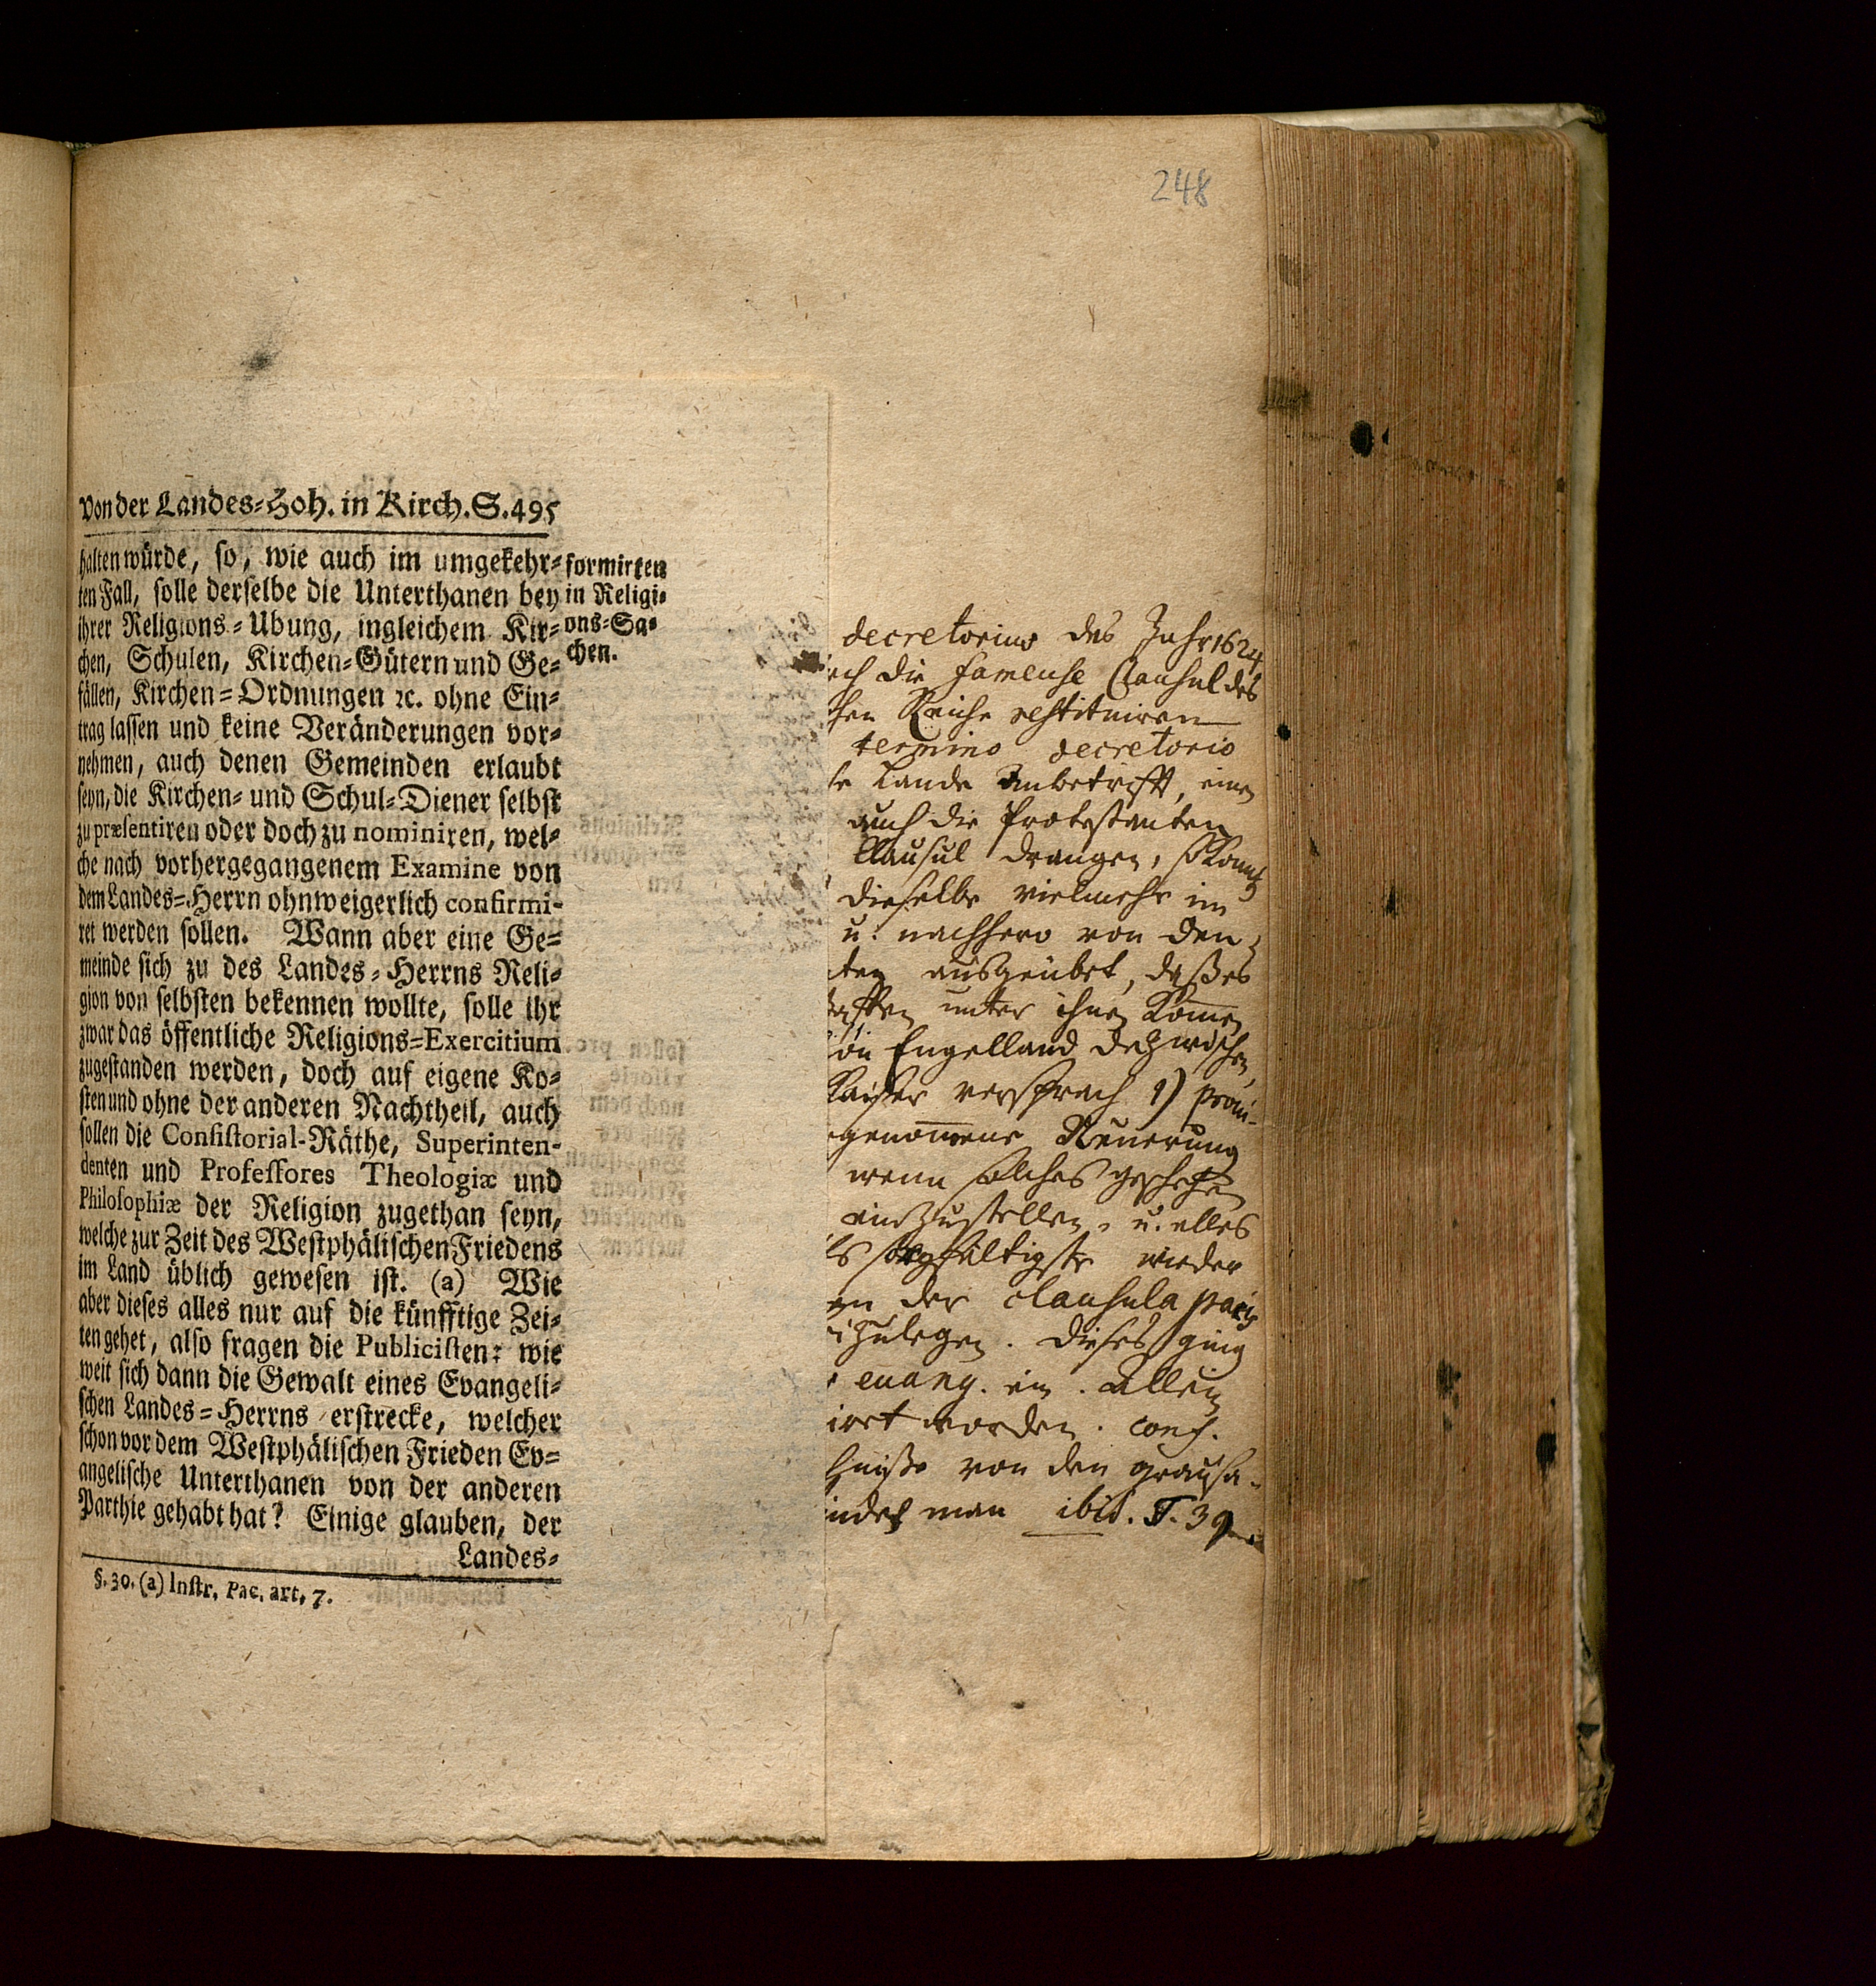 248
Von der Landes-Hoh. in Kirch. S. 495
halten würde, so, wie auch im umgekehr-
ten Fall, solle derselbe die Unterthanen bey
ihrer Religions-Ubung, ingleichem Kir-
chen, Schulen, Kirchen-Gütern und Ge-
fällen, Kirchen-Ordnungen ꝛc. ohne Ein-
trag lassen und keine Veränderungen vor-
nehmen, auch denen Gemeinden erlaubt
seyn, die Kirchen- und Schul-Diener selbst
zu præsentiren oder doch zu nominiren, wel-
che nach vorhergegangenem Examine von
dem Landes-Herrn ohnweigerlich confirmi-
ret werden sollen. Wann aber eine Ge-
meinde sich zu des Landes-Herrns Reli-
gion von selbsten bekennen wollte, solle ihr
zwar das öffentliche Religions-Exercitium
zugestanden werden, doch auf eigene Ko-
sten und ohne der anderen Nachtheil, auch
sollen die Consistorial-Räthe, Superinten-
denten und Professores Theologiæ und
Philosophiæ der Religion zugethan seyn,
welche zur Zeit des Westphälischen Friedens
im Land üblich gewesen ist. (a) Wie
aber dieses alles nur auf die künfftige Zei-
ten gehet, also fragen die Publicisten: wie
weit sich dann die Gewalt eines Evangeli-
schen Landes-Herrns erstrecke, welcher
schon vor dem Westphälischen Frieden Ev-
angelische Unterthanen von der anderen
Parthie gehabt hat? Einige glauben, der
Landes-
§. 30. (a) Instr. Pac. art. 7.
formirten
in Religi-
ons-Sa-
chen.
decretorius des Jahr 1624
die fameuse Clausul des
Reiche restituiren
termino decretorio
Lande Anbetrifft, einen
auch die Protestanten
Clausul drangen,
dieselbe vielmehr im
u. nachhero von den
ausgeübet, daß es
unter ihnen kommen
Engelland dazwischen
Kaiser versprach 1)
genommene Neuerung
wenn solches geschehen
einzustellen, u. alles
sorgfältigste wieder
der clausula pacis
zulegen. dieses ging
evang. in. allein
worden. conf.
von den grausa-
man ibid. T. 39